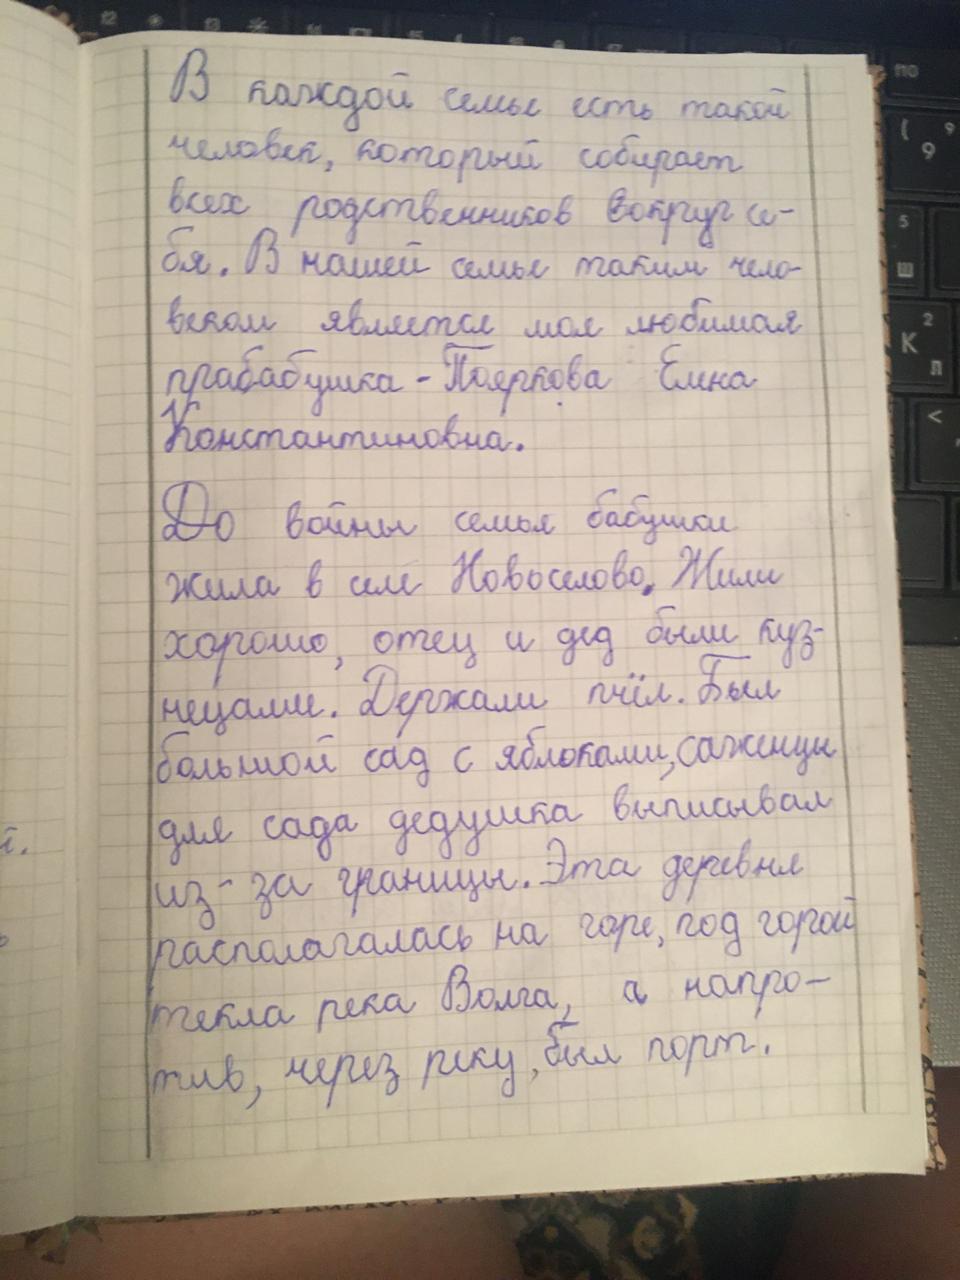 В каждой семье есть такой
человек, который собирает
всех родственников вокруг се-
бя. В нашей семье таким чело-
веком является моя любимая
прабабушка - Пояркова Елена
Константиновна.
До войны семья бабушки
жила в селе Новоселово. Жили
хорошо, отец и дед были куз-
нецами. Держали пчёл. Был
большой сад с яблоками, саженцы
для сада дедушка выписывал
из-за границы. Эта деревня
располагалась на горе, под горой
текла река Волга, а напро-
тив, через реку, был порт.
й.
ПО
( 9
9
5
Ш
2
К
Л
<